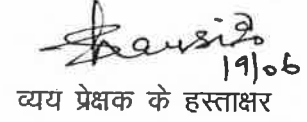 19/06
व्यय प्रेक्षक के हस्ताक्षर